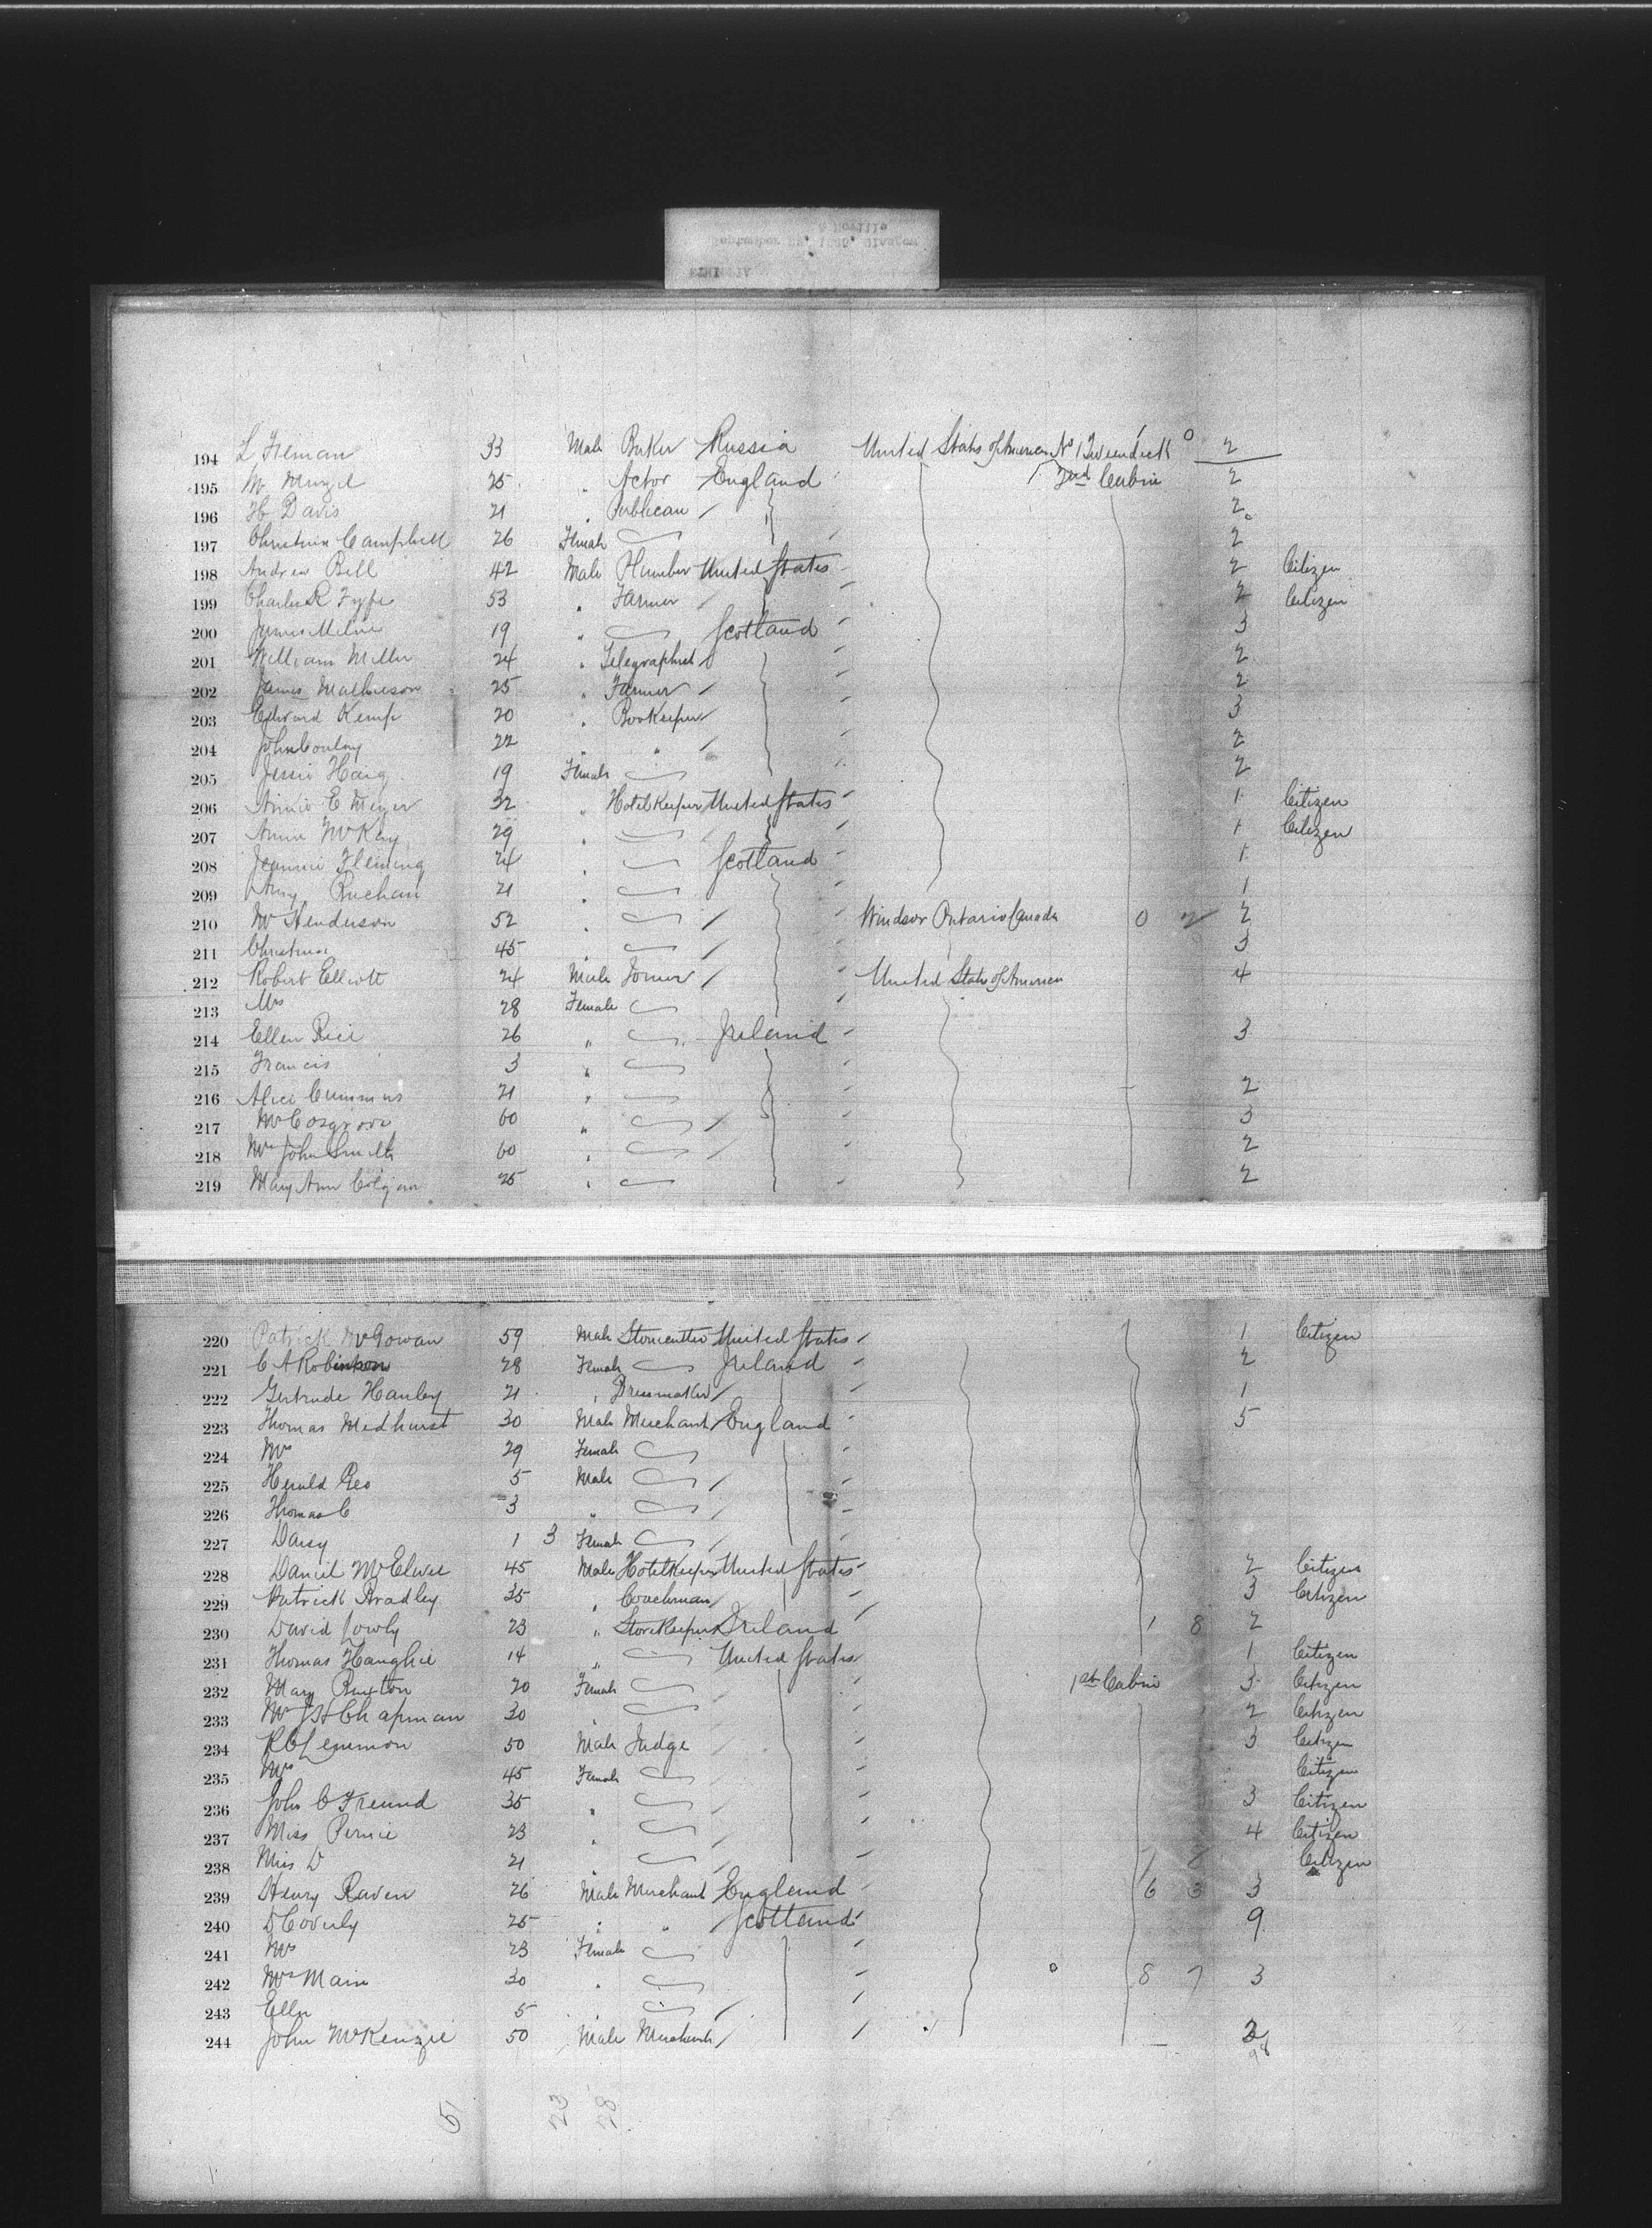 194 L Freman 33 Male Baker Russia United States of America No 1 Tweendeck 0 2
195 25 " Actor England 2nd Cabin 2
196 H Davis 21 " Publican 2
197 Christina Campbell 26 Female 2
198 Andrew Bell 42 Male Plumber United States 2 Citizen
199 Charles R Fyfe 53 " Farmer 2 Citizen
200 James Milne 19 " Scotland 3
201 William Miller 24 " Telegraphist 2
202 James Mathieson 25 " Farmer 2
203 Edward Kemp 20 " Bookeeper 3
204 John 22 " " 2
205 Jessie Haig 19 Female 2
206 Annie E Meyer 32 " Hotelkeeper United States 1 Citizen
207 Annie McKay 29 " 1 Citizen
208 Jeannie Fleming 24 " Scotland 1
209 Amy Buchan 21 " 1
210 Mrs Henderson 52 " Windsor Ontario Canada 0 2 2
211 Christina 45 " 3
212 Robert Elliott 24 Male Joiner United States of America 4
213 Mrs 28 Female
214 Ellen Rice 26 " Ireland 3
215 Francis 3 "
216 Alice Cummins 21 " 2
217 Mrs Cosgrove 60 " 3
218 Mrs John Smith 60 " 2
219 Mary Ann Colgan 25 " 2
220 Patrick McGowan 59 Male Stonecutter United States 1 Citizen
221 C A Robinson 28 Female Ireland 2
222 Gertrude Hanley 21 " Dressmaker 1
223 Thomas Medhurst 30 Male Merchant England 5
224 Mrs 29 Female
225 Herald Geo 5 Male
226 Thomas C 3 "
227 Daisy 1 3 Female
228 Daniel McElwee 45 Male Hotelkeeper United States 2 Citizen
229 Patrick Bradley 35 " Coachman 3 Citizen
230 David 23 " Storekeeper Ireland 1 8 2
231 Thomas Haughie 14 " United States 1 Citizen
232 Mary Buxton 20 Female 1st Cabin 3 Citizen
233 Mrs Chapman 30 " 2 Citizen
234 R C Lemmon 50 Male Judge 3 Citizen
235 Mrs 45 Female Citizen
236 John C Freund 35 " 3 Citizen
237 Miss 23 " 4 Citizen
238 Miss D 21 " Citizen
239 Henry Raven 26 Male Merchant England 6 3 3
240 D Coverly 25 " " Scotland 9
241 Mrs 23 Female
242 Mrs Main 30 " 8 7 3
243 Ella 5 "
244 John McKenzie 50 Male Merchant 2
98
51 23 28